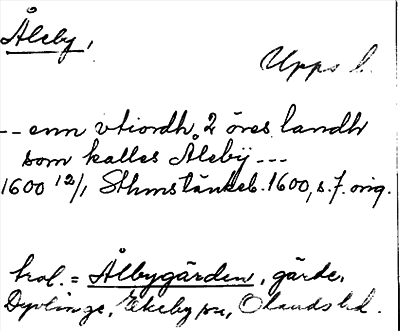 Åleby,
Upps l.
-- enn vtiordh, 2 öres landh
som kalles Ålebÿ ---
1600 12/1 Sthms tänkeb. 1600, s. 7. orig.
trol. = Ålbygärden, gärde,
Dyvlinge, Ekeby sn, Olands hd.